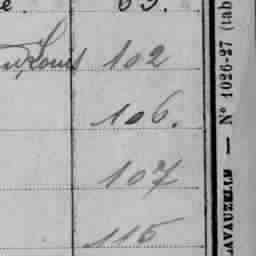 e. 65.
Louis 102
106.
107
115
LAVAUZELLE — N° 1026-27 (tab